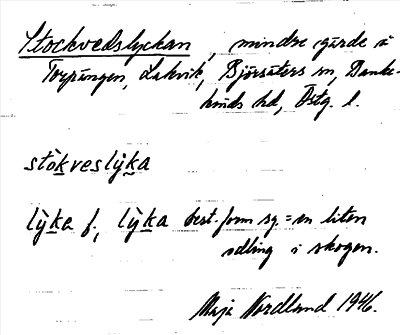 Stockvedslyckan, mindre gärde i
Torpängen, Lakvik, Björsäters sn, Banke-
kinds hd, Östg. l.
stòkveslỳka
lỳka f., lỳka best. form sg. = en liten
odling i skogen.
Maja Nordlund 1946.